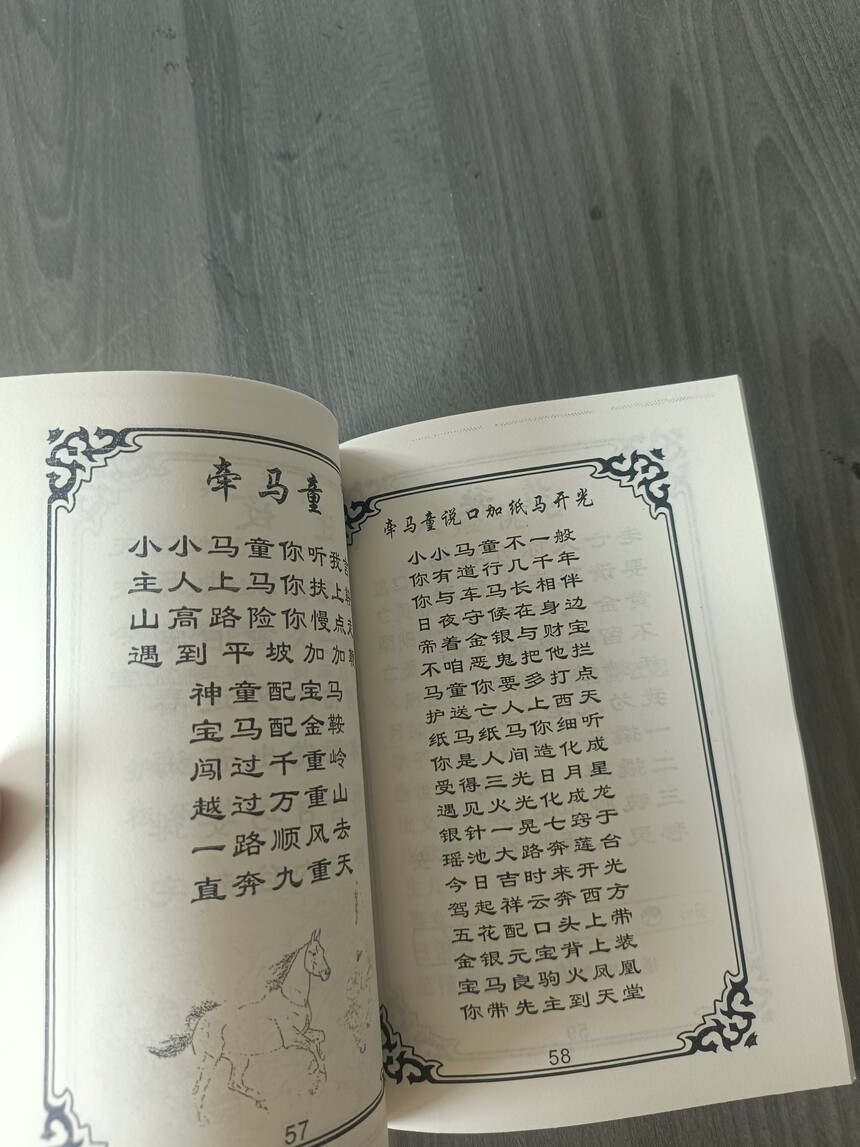 牵马童
小小马童你听我言
主人上马你扶上
山高路险你慢点走
遇到平坡加加
神童配宝马
宝马配金鞍
闯过千重岭
越过万重山
一路顺风去
直奔九重天
57
牵马童说口加纸马开光
小小马童不一般
你有道行几千年
你与车马长相伴
日夜守候在身边
帝着金银与财宝
不咱恶鬼把他拦
马童你要多打点
护送亡人上西天
纸马纸马你细听
你是人间造化成
受得三光日月星
遇见火光化成龙
银针一晃七窍于
瑶池大路奔莲台
今日吉时来开光
驾起祥云奔西方
五花配口头上带
金银元宝背上装
宝马良驹火凤凰
你带先主到天堂
58